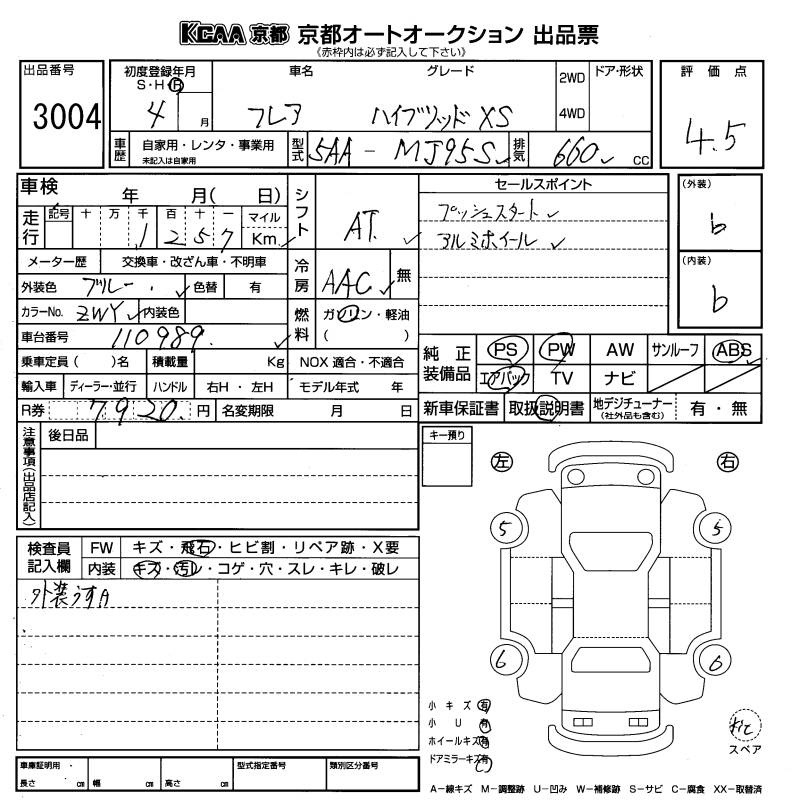 KCAA 京都 京都オートオークション 出品票
《赤枠内は必ず記入して下さい》
出品番号
3004
初度登録年月
S・H・R
4 月
車名
フレア
グレード
ハイブリッド XS
2WD
4WD
ドア・形状
評価点
4.5
車歴
自家用・レンタ・事業用
未記入は自家用
型式
5AA - MJ95S
排気
660 cc
車検 年 月( 日)
走行
記号 十 万 千 百 十 一
1 2 5 7
マイル
Km
シフト
AT
セールスポイント
プッシュスタート
アルミホイール
(外装)
b
(内装)
b
メーター歴 交換車・改ざん車・不明車
冷房
AAC
無
外装色 ブルー
色替 有
カラーNo. ZWY
内装色
燃料
ガソリン・軽油
( )
車台番号 110989
純正装備品
PS PW AW サンルーフ ABS
エアバック TV ナビ
乗車定員( )名 積載量 Kg NOX 適合・不適合
輸入車 ディーラー・並行 ハンドル 右H・左H モデル年式 年
R券 7920 円 名変期限 月 日
新車保証書 取扱説明書 地デジチューナー
(社外品も含む)
有・無
注意事項(出品店記入)
後日品
キー預り
左 右
5 5
6 6
検査員記入欄
FW キズ・飛石・ヒビ割・リペア跡・X要
内装 キズ・汚レ・コゲ・穴・スレ・キレ・破レ
外装うすA
小キズ 有
小U 有
ホイールキズ 有
ドアミラーキズ 有
スペア
車庫証明用・
長さ cm 幅 cm 高さ cm
型式指定番号
類別区分番号
A-線キズ M-調整跡 U-凹み W-補修跡 S-サビ C-腐食 XX-取替済